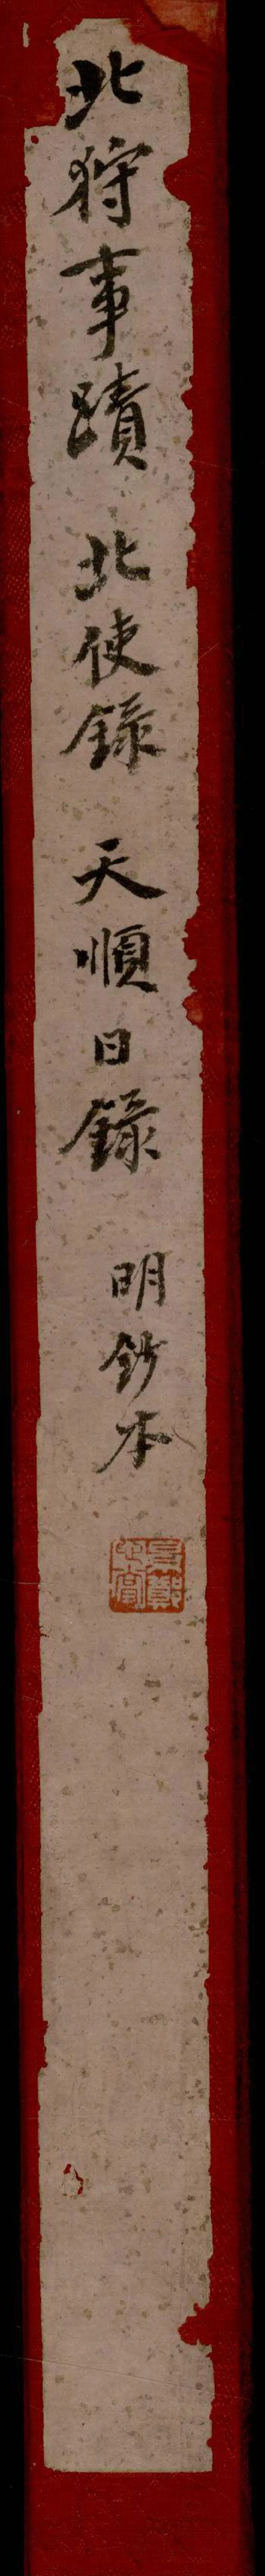 北狩事蹟 北使錄 天順日錄 明鈔本